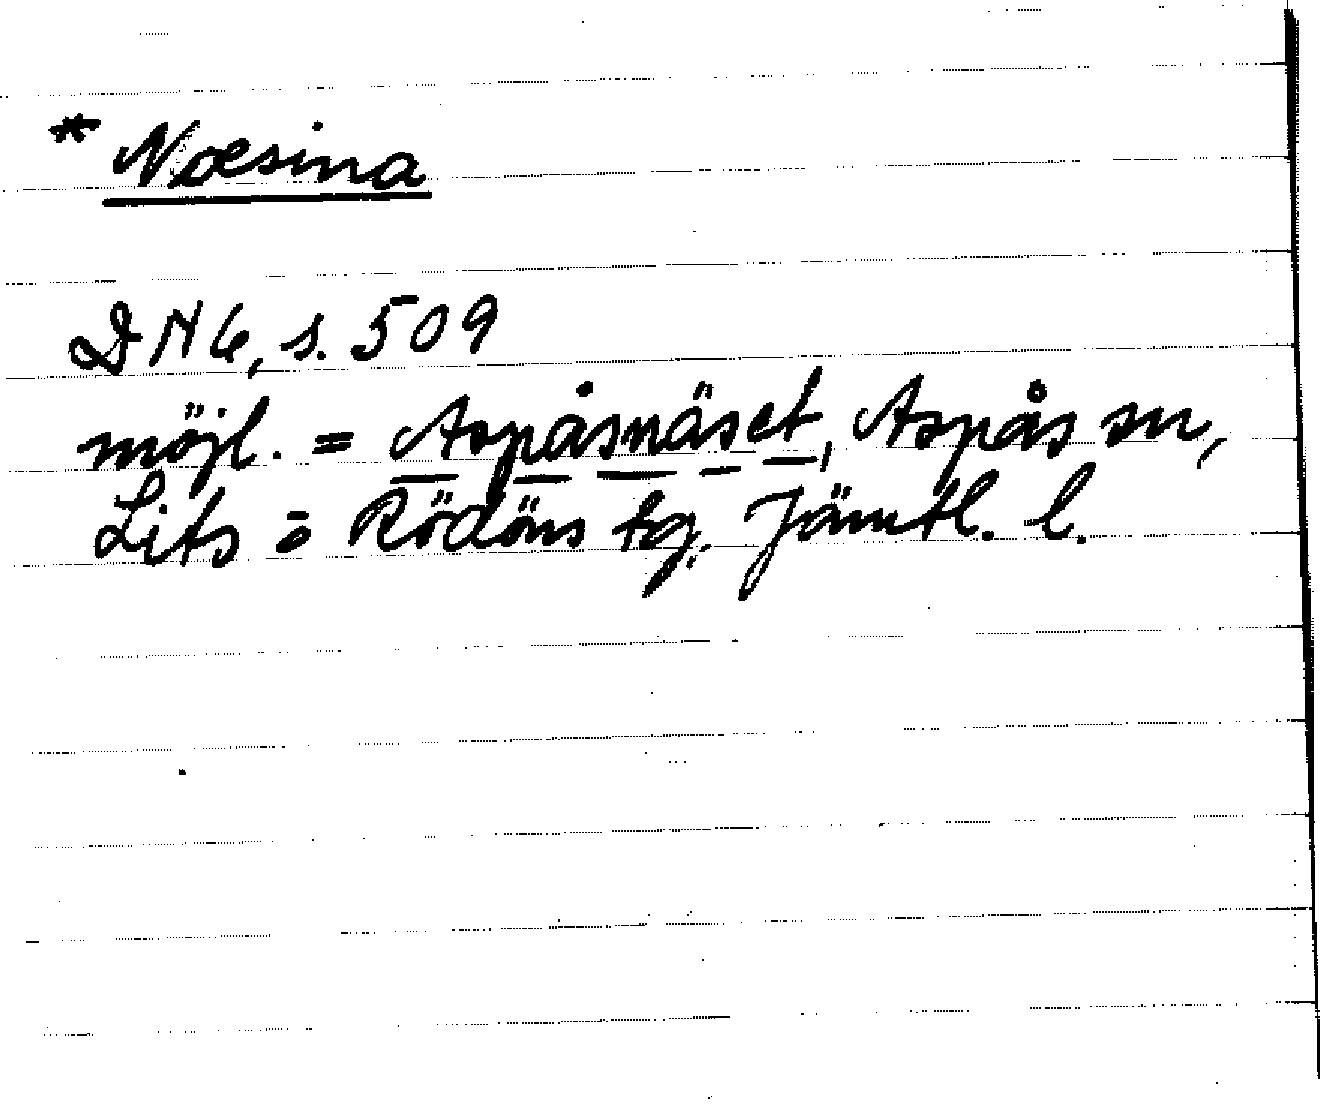 * Noesina
DN 6, s. 509
möjl. = Aspåsnäset, Aspås sn,
Lits o Rödöns tg. Jämtl. l.